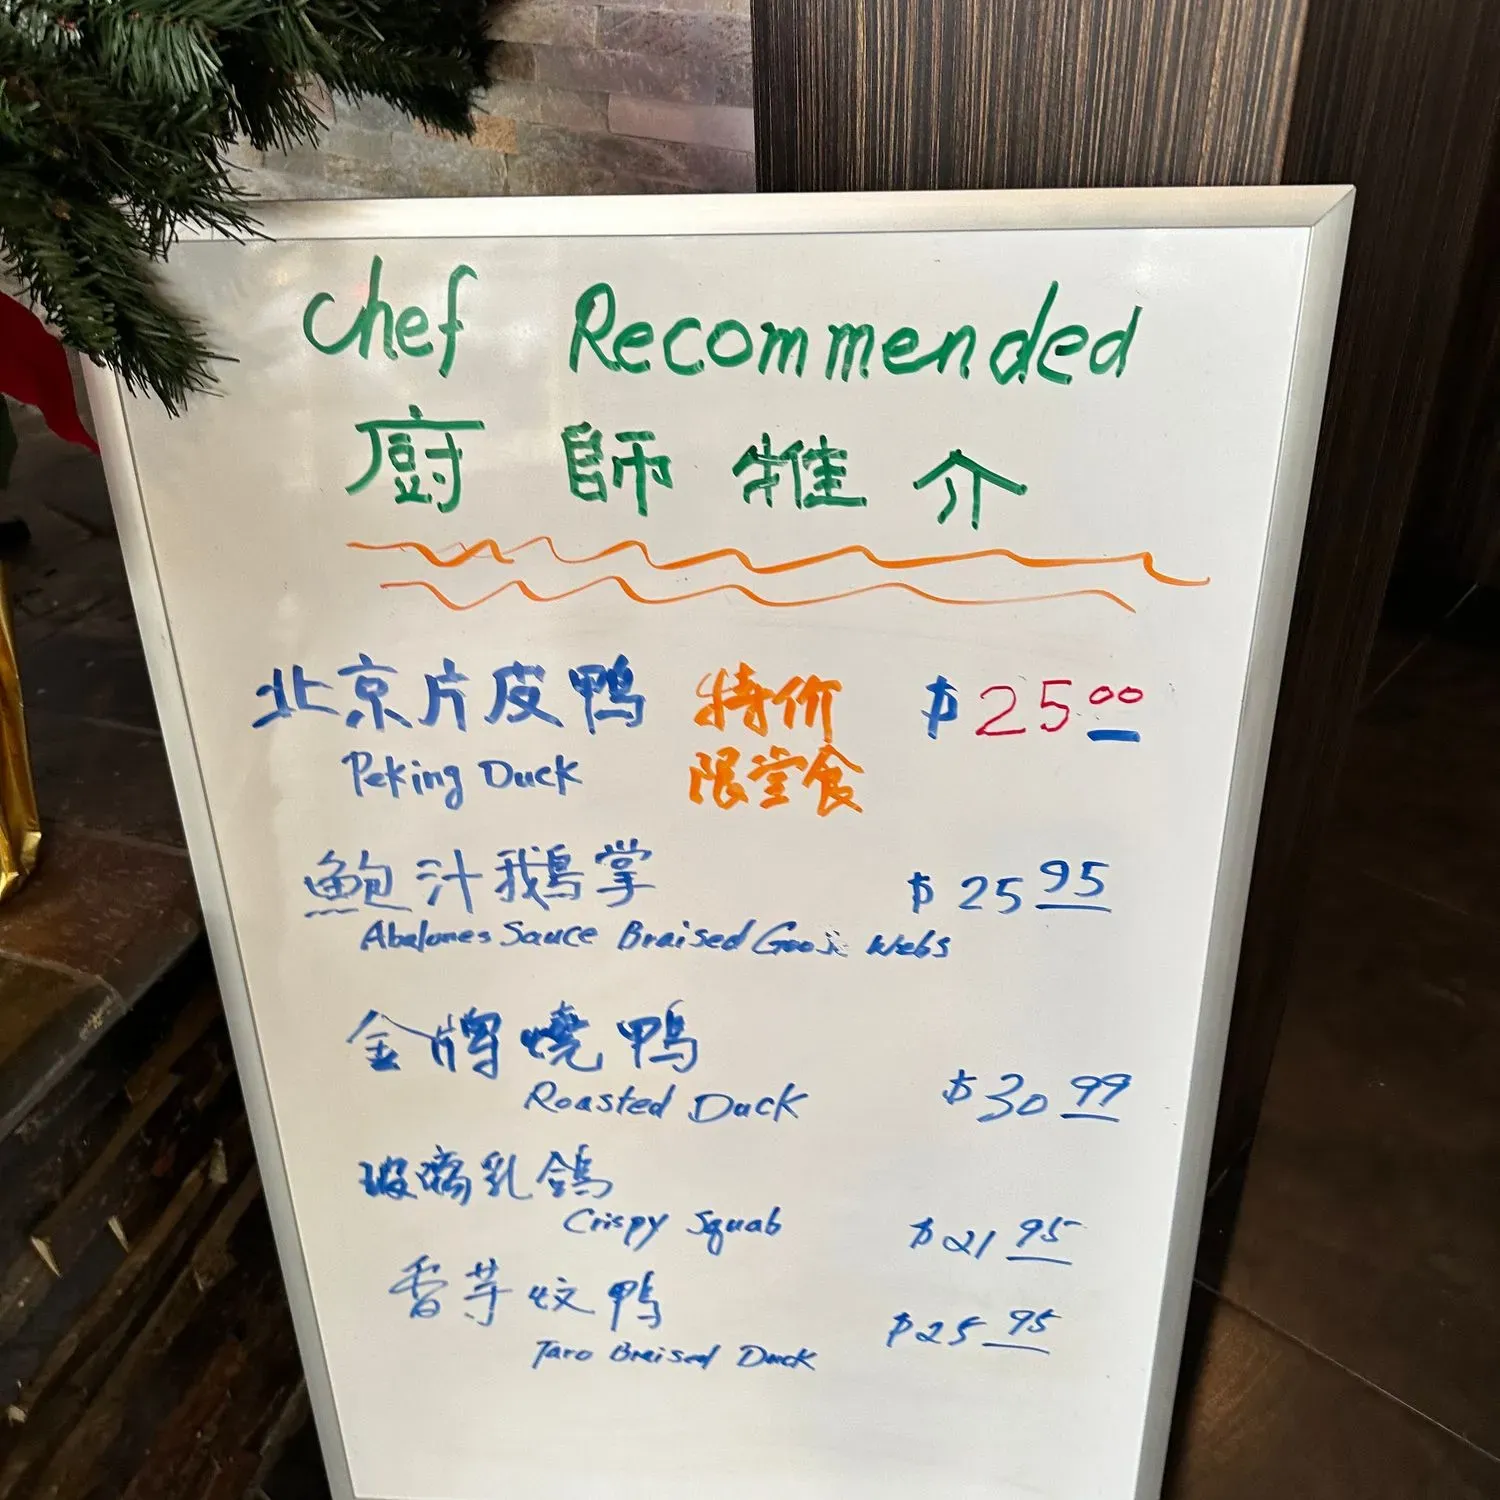 Chef Recommended
廚師推介
北京片皮鴨 特价 $25.00
Peking Duck 限堂食
鮑汁鵝掌 $25.95
Abalones Sauce Braised Goose Webs
金牌燒鴨
Roasted Duck $30.99
玻璃乳鴿
Crispy Squab $21.95
香芋炆鴨
Taro Braised Duck $25.95